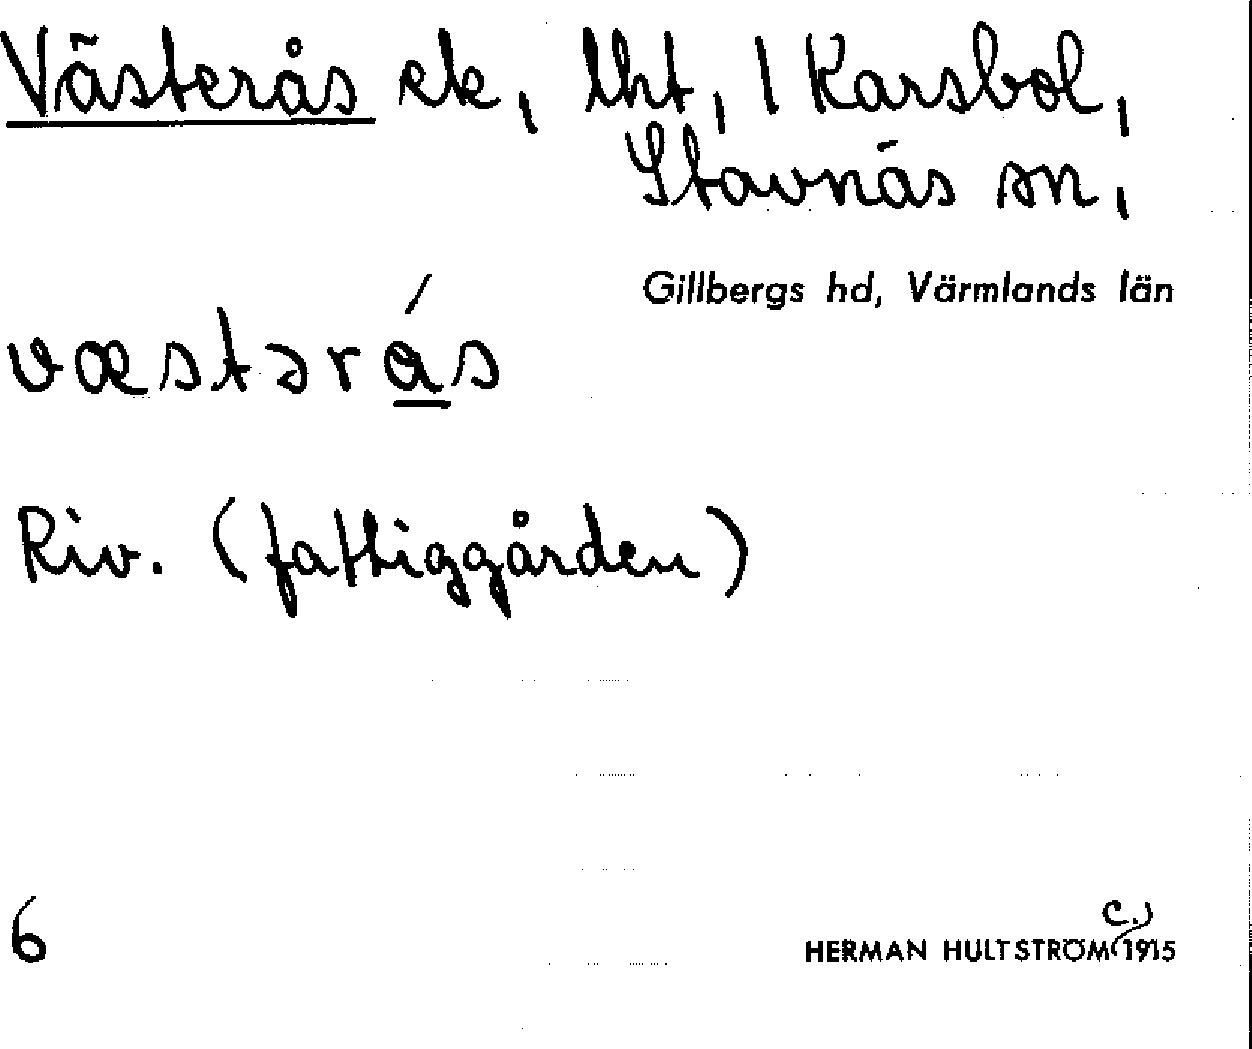 Västerås ek, lht, 1 Karsbol,
Stavnäs sn,
Gillbergs hd, Värmlands län
væstərás
Riv. (fattiggården)
6
c.
HERMAN HULTSTRÖM 1915